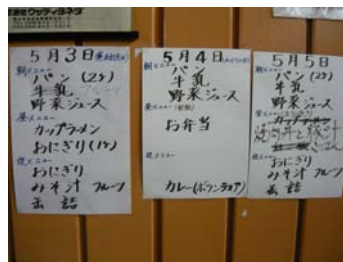 株式会社 ウッディヨネダ
5月3日
朝メニュー
パン (2ケ)
牛乳 フルーツ
野菜ジュース
昼メニュー
カップラーメン
おにぎり(1ケ)
夜メニュー
おにぎり
みそ汁 フルーツ
缶詰
5月4日
朝メニュー
パン
牛乳
野菜ジュース
昼メニュー
お弁当
夜メニュー
カレー(ボランティア)
5月5日
朝メニュー
パン (2ケ)
牛乳
野菜ジュース
昼メニュー
カップラーメン
夜メニュー
おにぎり
みそ汁 フルーツ
缶詰